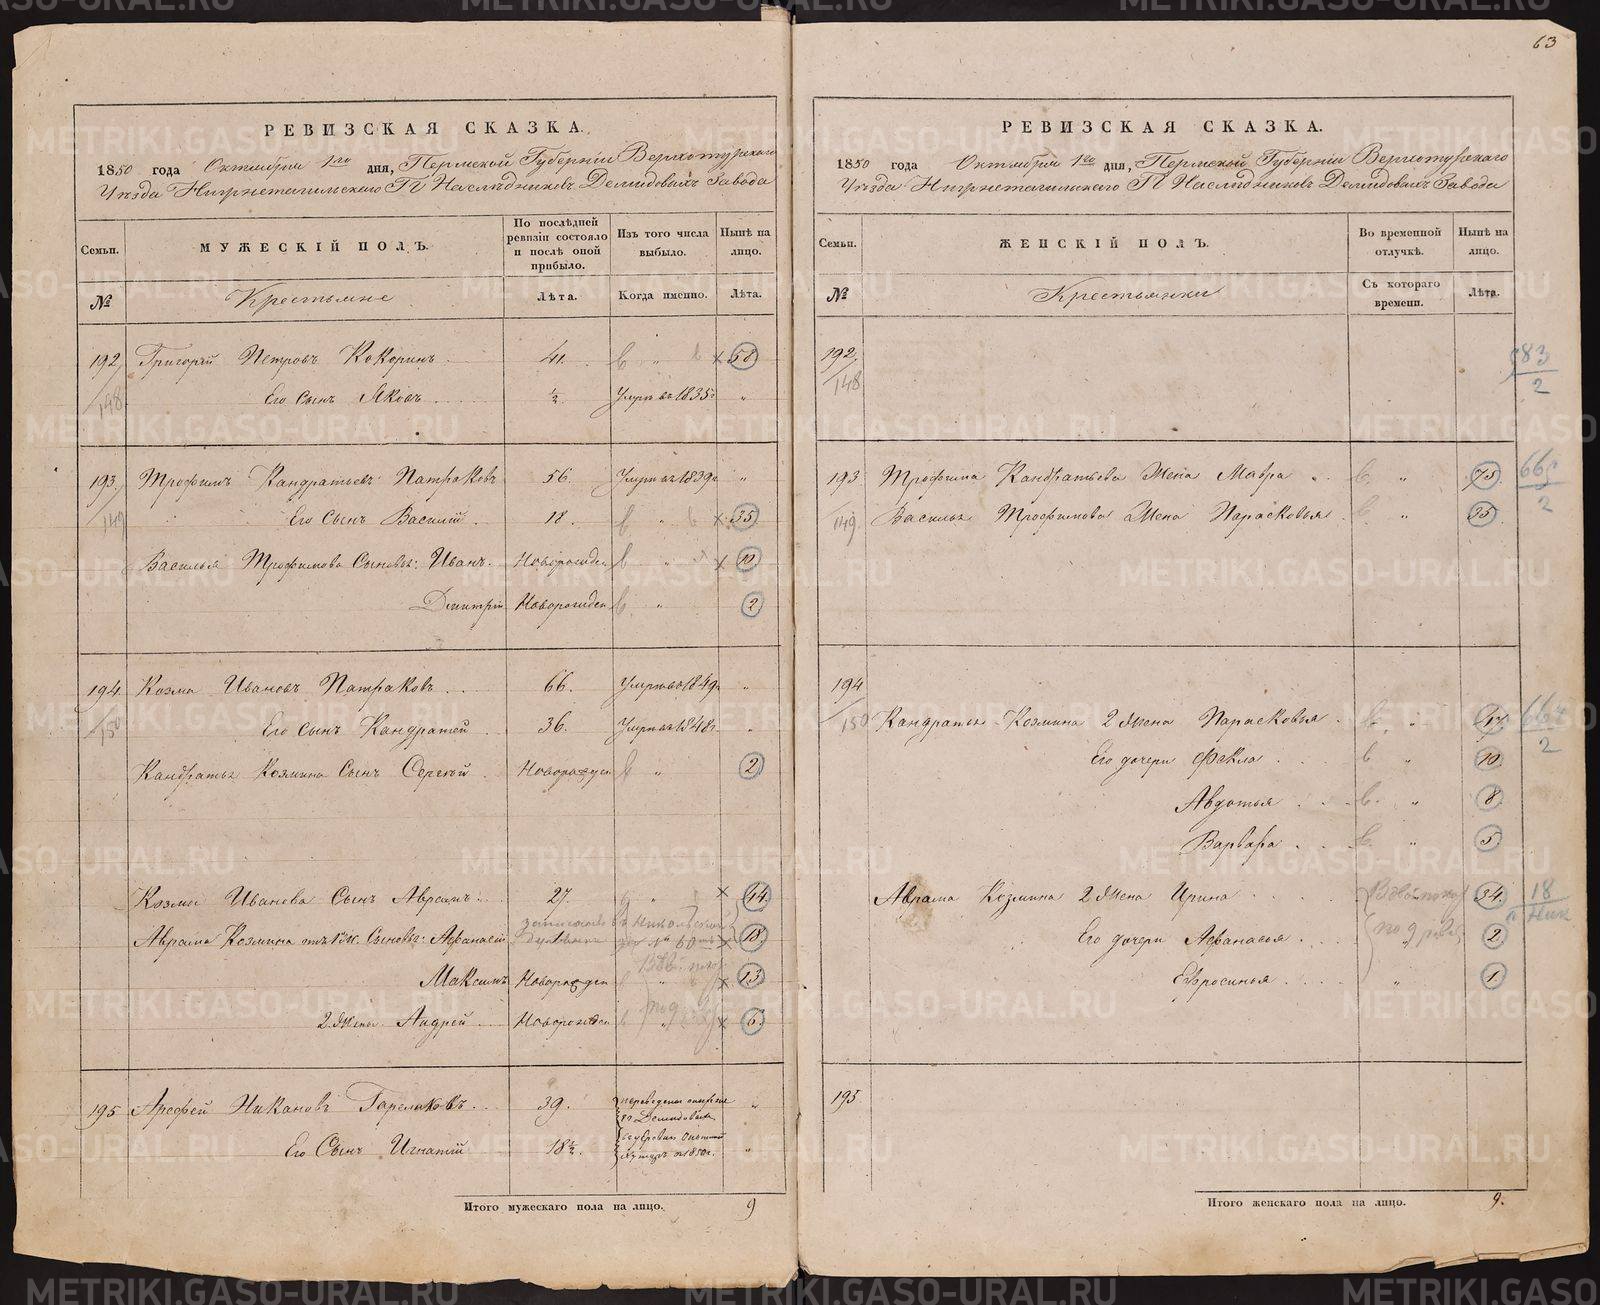 63
РЕВИЗСКАЯ СКАЗКА.
1850 года Октября 1го дня, Пермской Губерніи Верхотурскаго
Уѣзда Нижнетагильскаго Гг Наслѣдниковъ Демидовыхъ Завода
Семьи. МУЖЕСКІЙ ПОЛЪ. По послѣдней ревизіи состояло и послѣ оной прибыло. Изъ того числа выбыло. Нынѣ на лицо.
№ Крестьяне Лѣта. Когда именно. Лѣта.
192 Григорій Петровъ Кокоринъ 41. 58
148 Его Сынъ Яковъ ½ Умръ въ 1835г „
193. Трофимъ Кандратьевъ Патраковъ 56. Умръ въ 1839г „
149 Его Сынъ Василій 18. 35
Василья Трофимова Сыновья: Иванъ. Новорожден 10
Дмитрій Новорожден 2
194. Козма Ивановъ Патраковъ 66. Умръ въ 1849г „
150 Его сынъ Кандратей 36. Умръ въ 1848г „
Кандратья Козмина Сынъ Сергѣй Новорожден 2
Козмы Иванова Сынъ Аврамъ 27. 44
Аврама Козмина отъ 1 ж. Сыновья: Афанасій 1 18
Максимъ Новорожден 13
2 Жены Андрей Новорожден 6
195 Арефей Никановъ Гарелаковъ 39. „
Его Сынъ Игнатій 18½. „
Итого мужескаго пола на лицо. 9
РЕВИЗСКАЯ СКАЗКА.
1850 года Октября 1го дня, Пермской Губерніи Верхотурскаго
Уѣзда Нижнетагильскаго Гг Наслѣдниковъ Демидовыхъ Завода
Семьи. ЖЕНСКІЙ ПОЛЪ. Во временной отлучкѣ. Нынѣ на лицо.
№ Крестьянки Съ котораго времени. Лѣта.
192. 83/2
148
193 Трофима Кандратьева Жена Мавра „ 75
149 Василья Трофимова Жена Парасковья „ 35
194
150 Кандратья Козмина 2 Жена Парасковья „
Его дочери Фекла „ 10
Авдотья „ 8
Варвара „ 5
Аврама Козмина 2 Жена Ирина 34. 18
Его дочери Афанасья 2
Евросинья „ 1
195
Итого женскаго пола на лицо. 9.
METRIKI.GASO-URAL.RU